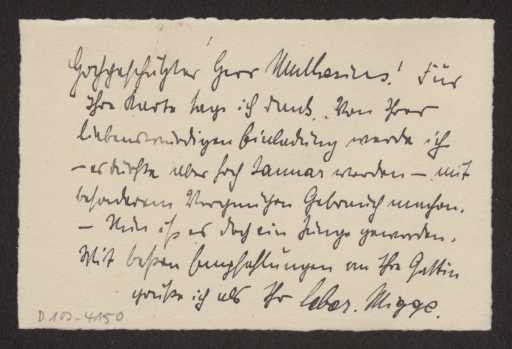 Hochgeschätzter Herr Muthesius! Für
Ihre Karte sage ich Dank. Von Ihrer
liebenswürdigen Einladung werde ich
– es dürfte aber hoch Januar werden – mit
besonderem Vergnügen Gebrauch machen.
– Nun ist es doch ein Junge geworden.
Mit besten Empfehlungen an Ihre Gattin
grüße ich als Ihr Leber. Migge.
D 102-4150